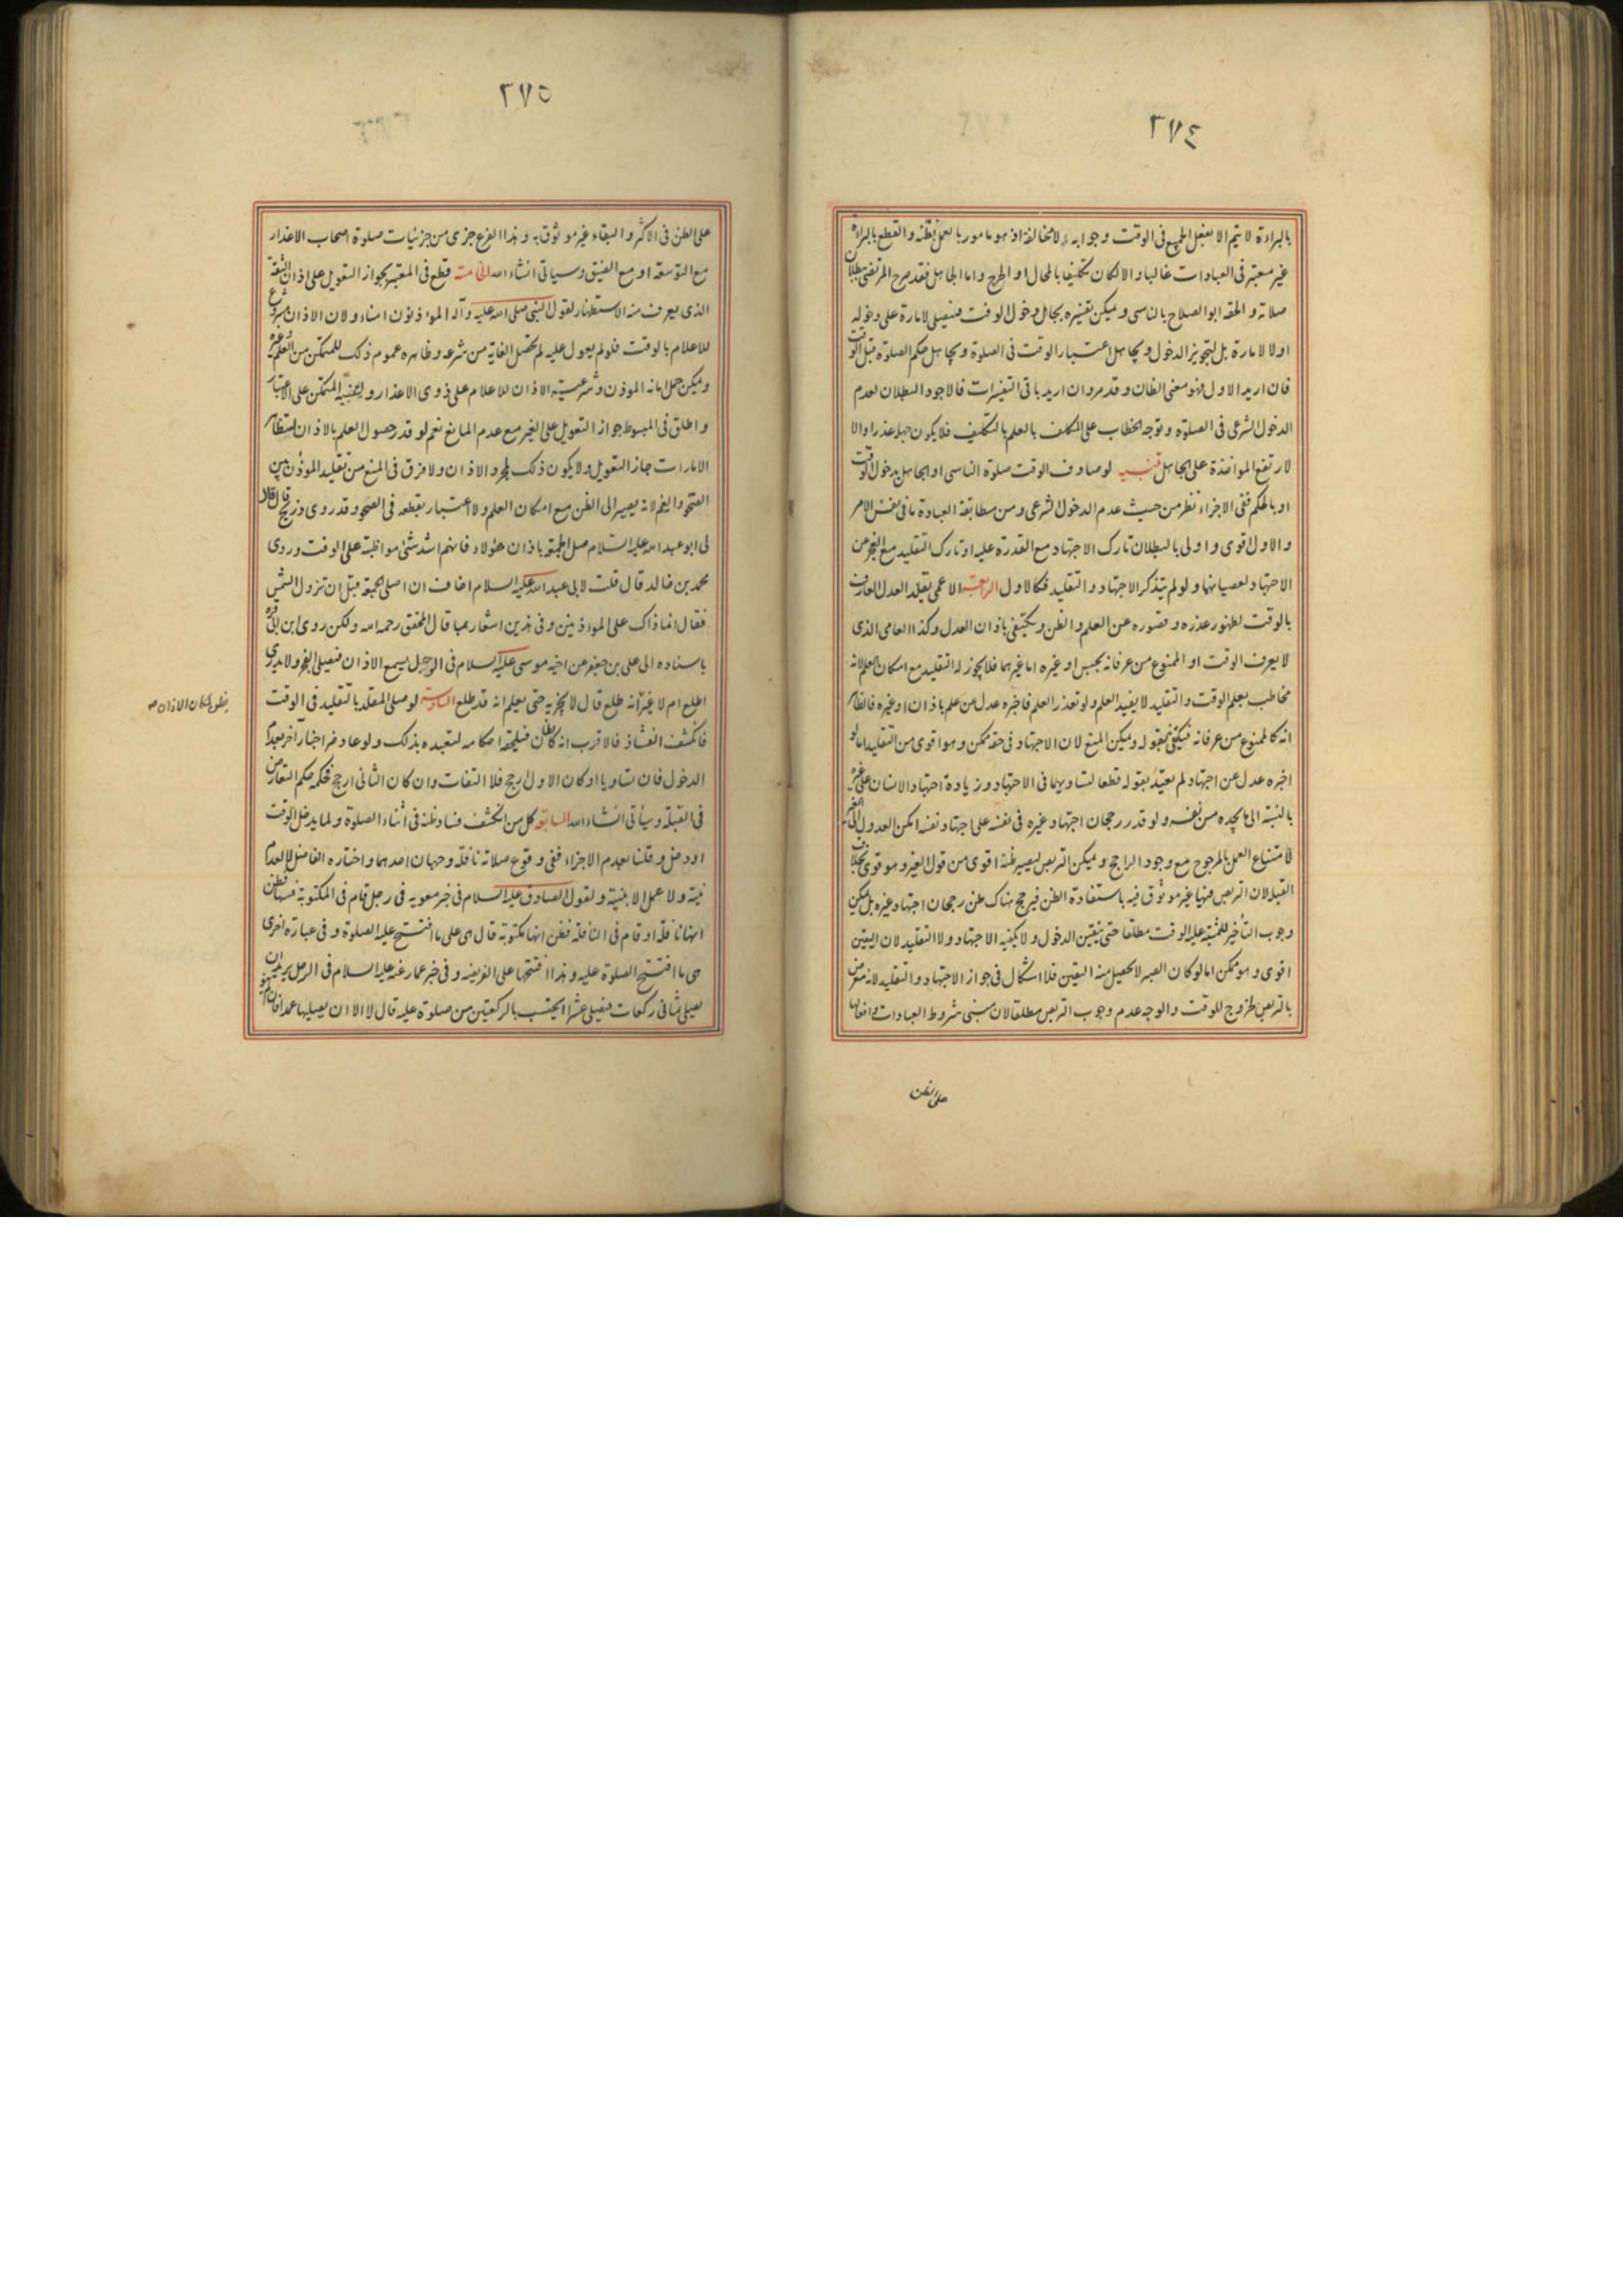 ٢٧٤
بالبراءة لا يتم الا بفعل الجميع فى الوقت وجوابه لا مخالفة اذ هو مامور بالعمل بظنه والقطع بالبراءة
غير معتبر فى العبادات غالبا والا لكان تكليفا بالمحال او الحرج واما الجاهل فقد صرح المرتضى ببطلان
صلاته والحقه ابو الصلاح بالناسى ويمكن تفسيره بجاهل دخول الوقت فيصلى لامارة على دخوله
اولا لامارة بل لتجويز الدخول وبجاهل اعتبار الوقت فى الصلوة وبجاهل حكم الصلوة قبل الوقت
فان اريد الاول فهو معنى الظان وقد مر وان اريد باقى التفسيرات فالاجود البطلان لعدم
الدخول الشرعى فى الصلوة وتوجه الخطاب على المكلف بالعلم بالتكليف فلا يكون جهله عذرا والا
لارتفع المواخذة على الجاهل تنبيه لو صادف الوقت صلوة الناسى او الجاهل بدخول الوقت
او بالحكم ففى الاجزاء نظر من حيث عدم الدخول الشرعى ومن مطابقة العبادة ما فى نفس الامر
والاول اقوى واولى بالبطلان تارك الاجتهاد مع القدرة عليه او تارك التقليد مع العجز عن
الاجتهاد لعصيانهما ولو لم يتذكر الاجتهاد والتقليد فكالاول الرابعة الاعمى يقلد العدل العارف
بالوقت لظهور عذره وقصوره عن العلم والظن ويكتفى باذان العدل وكذا العامى الذى
لا يعرف الوقت او الممنوع من عرفانه بحبس او غيره اما غيرهما فلا يجوز له التقليد مع امكان العلم لانه
مخاطب بعلم الوقت والتقليد لا يفيد العلم ولو تعذر العلم فاخبره عدل عن علم باذان او غيره فالظاهر
انه كالممنوع من عرفانه فيكتفى بقوله ويمكن المنع لان الاجتهاد فى حقه ممكن وهو اقوى من التقليد اما لو
اخبره عدل عن اجتهاد لم يعتد بقوله قطعا لتساويهما فى الاجتهاد وزيادة اجتهاد الانسان على غيره
بالنسبة الى ما يجده من نفسه ولو قدر رجحان اجتهاد غيره فى نفسه على اجتهاد نفسه امكن العدول الى الغير
لامتناع العمل بالمرجوح مع وجود الراجح ويمكن التربص ليصير ظنه اقوى من قول الغير وهو قوى بخلاف
القبلة لان التربص فيها غير موثوق فيه باستفادة الظن فيرجح هناك ظن رجحان اجتهاد غيره بل يمكن
وجوب التأخير للمشتبه عليه الوقت مطلقا حتى يتيقن الدخول ولا يكفيه الاجتهاد ولا التقليد لان اليقين
اقوى وهو ممكن اما لو كان الصبر لا يحصل منه اليقين فلا اشكال فى جواز الاجتهاد والتقليد لانه معرض
بالتربص لخروج الوقت والوجه عدم وجوب التربص مطلقا لان مبنى شروط العبادات وافعالها
على الظن
٢٧٥
على الظن فى الاكثر والبقاء غير موثوق به وهذا الفرع جزى من جزئيات صلوة اصحاب الاعذار
مع التوسعة او مع الضيق وسياتى انشاء الله الخامسة قطع فى المعتبر بجواز التعويل على اذان الثقة
الذى يعرف منه الاستظهار لقول النبى صلى الله عليه وآله المؤذنون امناء ولان الاذان مشروع
للاعلام بالوقت فلو لم يعول عليه لم تحصل الغاية من شرعه وظاهره عموم ذلك للمتمكن من العلم وغيره
ويمكن حمل امانة الموذن وشرعية الاذان للاعلام على ذوى الاعذار ولتنبيه المتمكن على الاعتبار
واطلق فى المبسوط جواز التعويل على الغير مع عدم المانع نعم لو قدر حصول العلم بالاذان لتظاهر
الامارات جاز التعويل ولا يكون ذلك لمجرد الاذان ولا فرق فى المنع من تقليد الموذن بين
الصحو والغيم لانه يصير الى الظن مع امكان العلم ولا اعتبار بقطعه فى الصحو وقد روى ذريح قال قال
لى ابو عبد الله عليه السلام صل الجمعة باذان هؤلاء فانهم اشد شئ مواظبة على الوقت وروى
محمد بن خالد قال قلت لابى عبد الله عليه السلام اخاف ان اصلى الجمعة قبل ان تزول الشمس
فقال انما ذاك على الموذنين وفى هذين اشعار بما قال المحقق رحمه الله ولكن روى ابن ابى قرة
باسناده الى على بن جعفر عن اخيه موسى عليه السلام فى الرجل يسمع الاذان فيصلى الفجر ولا يدرى
اطلع ام لا غير انه يظن لمكان الاذان انه طلع قال لا يجزيه حتى يعلم انه قد طلع السادسة لو صلى المقلد بالتقليد فى الوقت
فانكشف الفساد فالاقرب انه كالظان فيلحقه احكامه لتعبده بذلك ولو عارضه اخبار آخر بعدم
الدخول فان تساويا او كان الاول ارجح فلا التفات وان كان الثانى ارجح فحكمه حكم التعارض
فى القبلة وسيأتى انشاء الله السابعة كل من انكشف فساد ظنه فى أثناء الصلوة ولما يدخل الوقت
او دخل وقلنا بعدم الاجزاء ففى وقوع صلاته نافلة وجهان احدهما واختاره الفاضل لا لعدم
نية ولا عمل الا بنية ولقول الصادق عليه السلام فى خبر معوية فى رجل قام فى المكتوبة فسها فظن
انها نافلة او قام فى النافلة فظن انها مكتوبة قال هى على ما افتتح عليه الصلوة وفى عبارة اخرى
هى ما افتتح الصلوة عليه وهذا افتتحها على الفريضة وفى خبر عمار عنه عليه السلام فى الرجل يريد ان
يصلى ثمانى ركعات فيصلى عشرا ايحتسب بالركعتين من صلوة عليه قال لا الا ان يصليها عمدا فان لم ينو